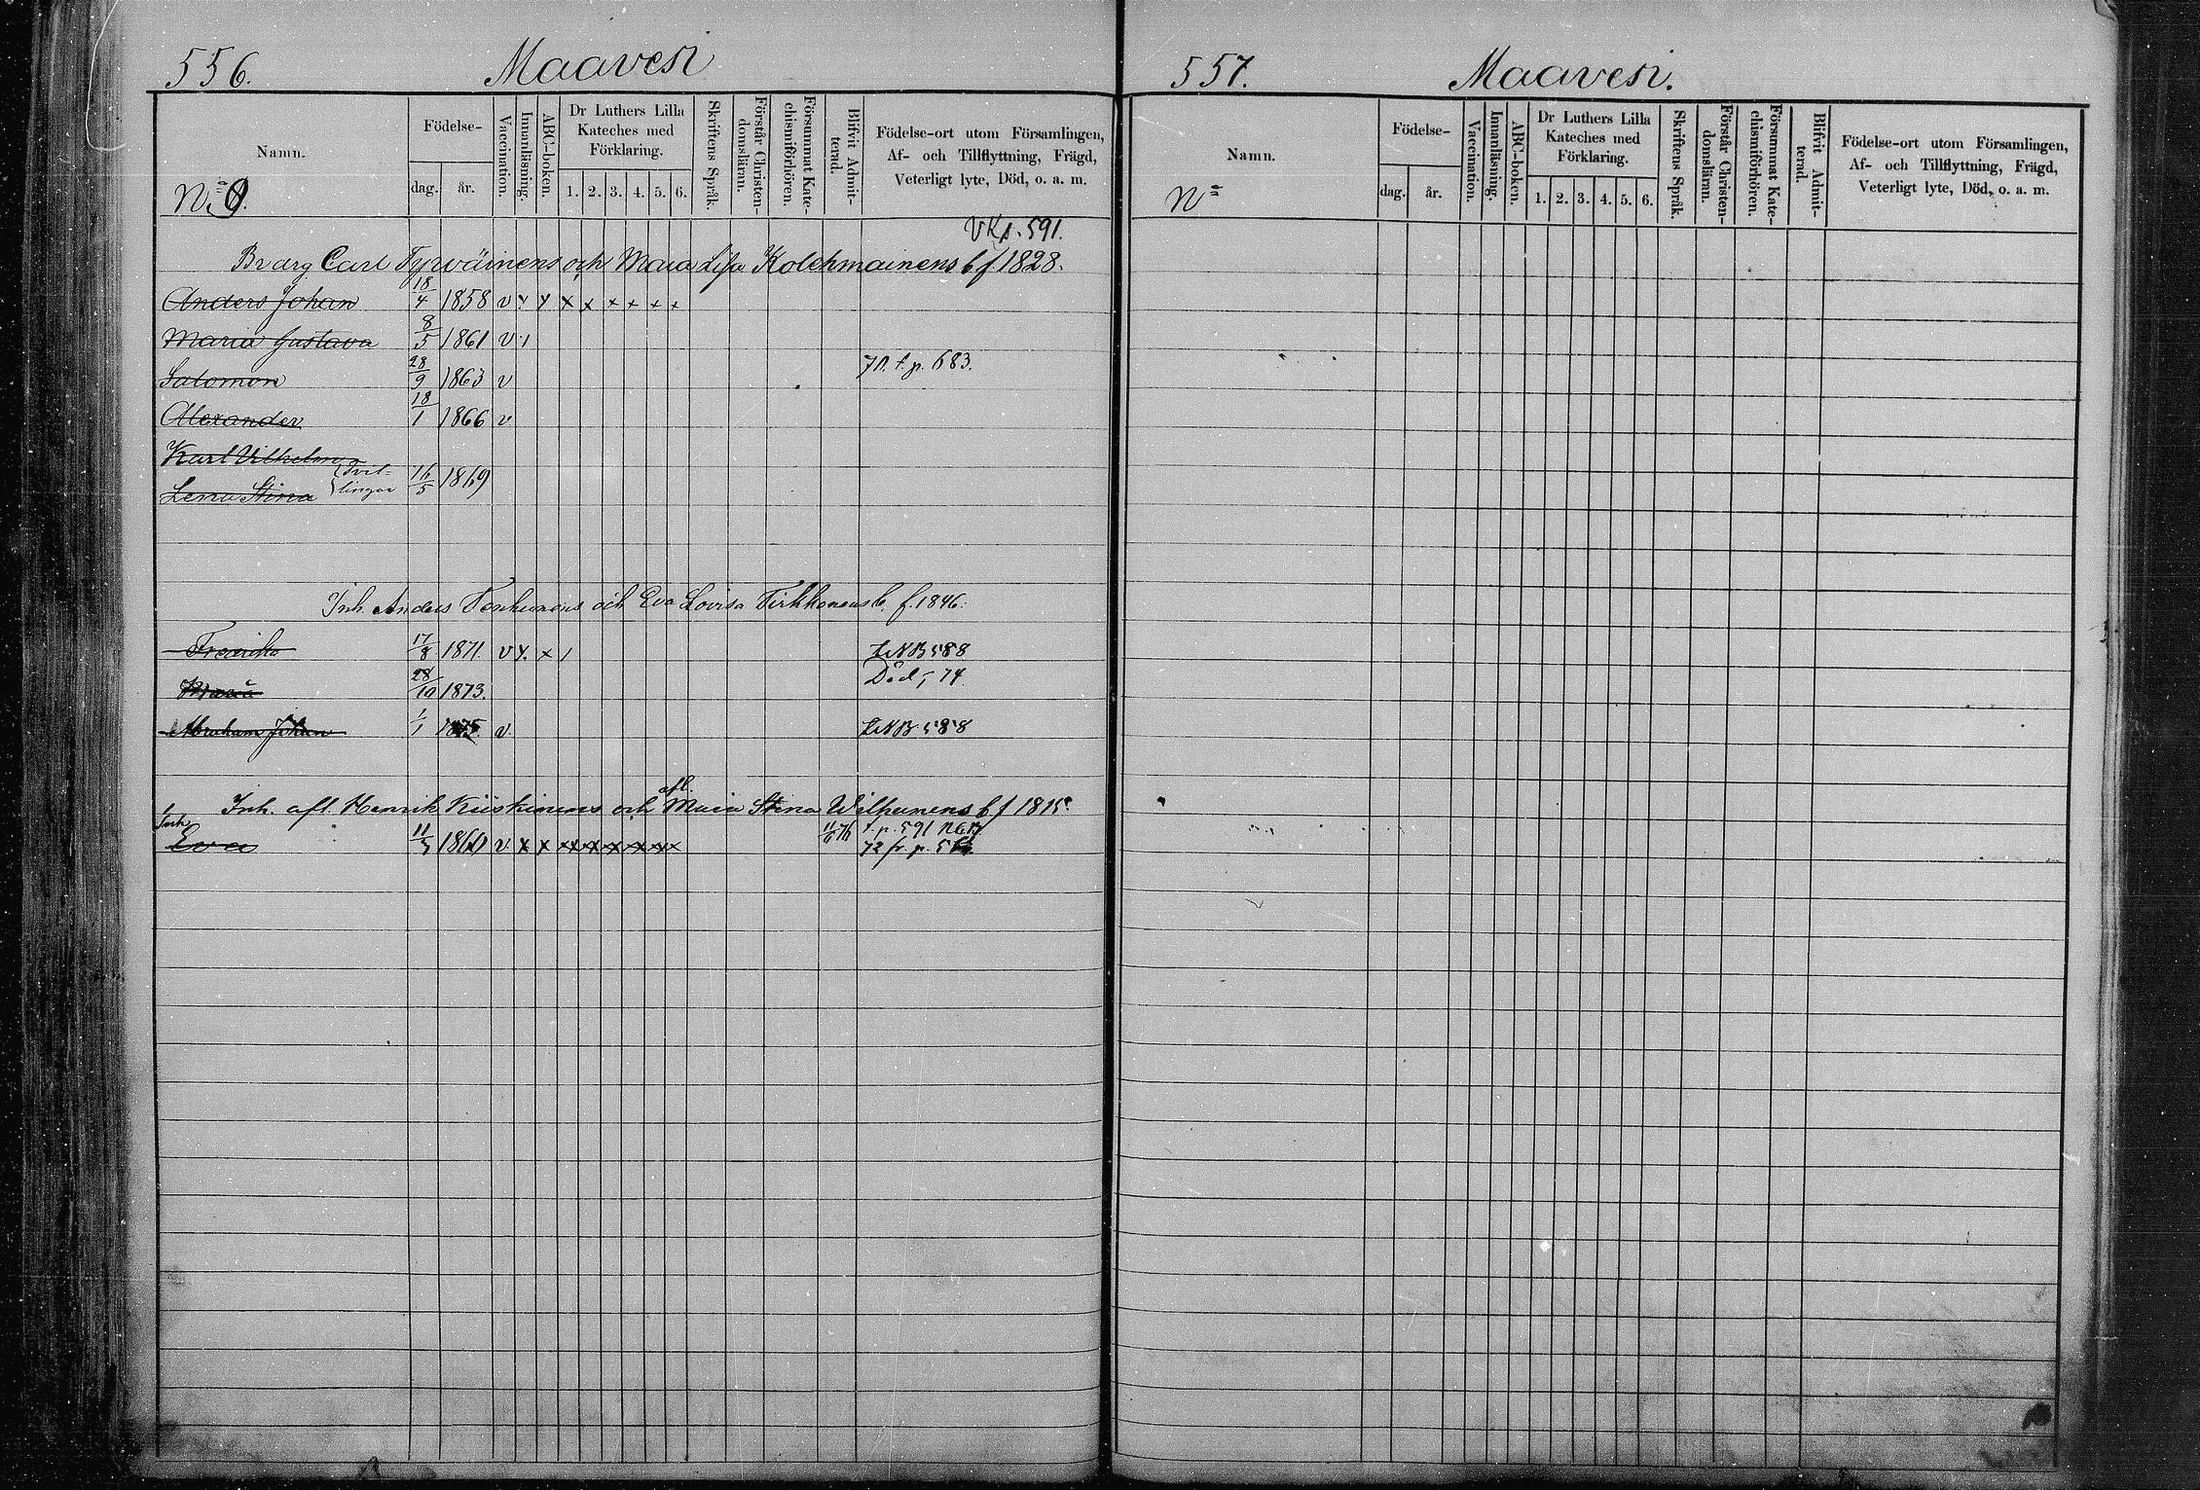 556. Maavesi
Namn.
Födelse-
dag. år.
Vaccination.
Innanläsning.
ABC-boken.
Dr Luthers Lilla Kateches med Förklaring.
1. 2. 3. 4. 5. 6.
Skriftens Språk.
Förstår Christen-domsläran.
Försummat Kate-chismiförhören.
Blifvit Admit-terad.
Födelse-ort utom Församlingen,
Af- och Tillflyttning, Frägd,
Veterligt lyte, Död, o. a. m.
No 9.
591.
Carl Tyrväinens och Maria Lisa Kolehmainens b f 1828.
Anders Johan 18/4 1858 v x x x x x x x x
Maria Gustava 8/5 1861 v
Salomon 28/9 1863 v t. p. 683.
Alexander 18/1 1866 v
Karl Vilhelm
Lena Stina Tvil-lingar 16/5 1869
Inh. Anders Tenhunens och Eva Lovisa Tirkkonens b. f. 1846.
Fredrika 17/8 1871. v x. x / LNB 588
Maria 28/10 1873. Död, 74.
Abraham Johan 1/1 1875 v LNB 588
Inh. afl. Henrik Kiiskinens och afl. Maria Stina Wilhunens b f 1815.
Inh. Eva 11/5 1860 v x x x x x x x x t. p. 591
72 fr. p.
557. Maavesi.
Namn.
Födelse-
dag. år.
Vaccination.
Innanläsning.
ABC-boken.
Dr Luthers Lilla Kateches med Förklaring.
1. 2. 3. 4. 5. 6.
Skriftens Språk.
Förstår Christen-domsläran.
Försummat Kate-chismiförhören.
Blifvit Admit-terad.
Födelse-ort utom Församlingen,
Af- och Tillflyttning, Frägd,
Veterligt lyte, Död, o. a. m.
No